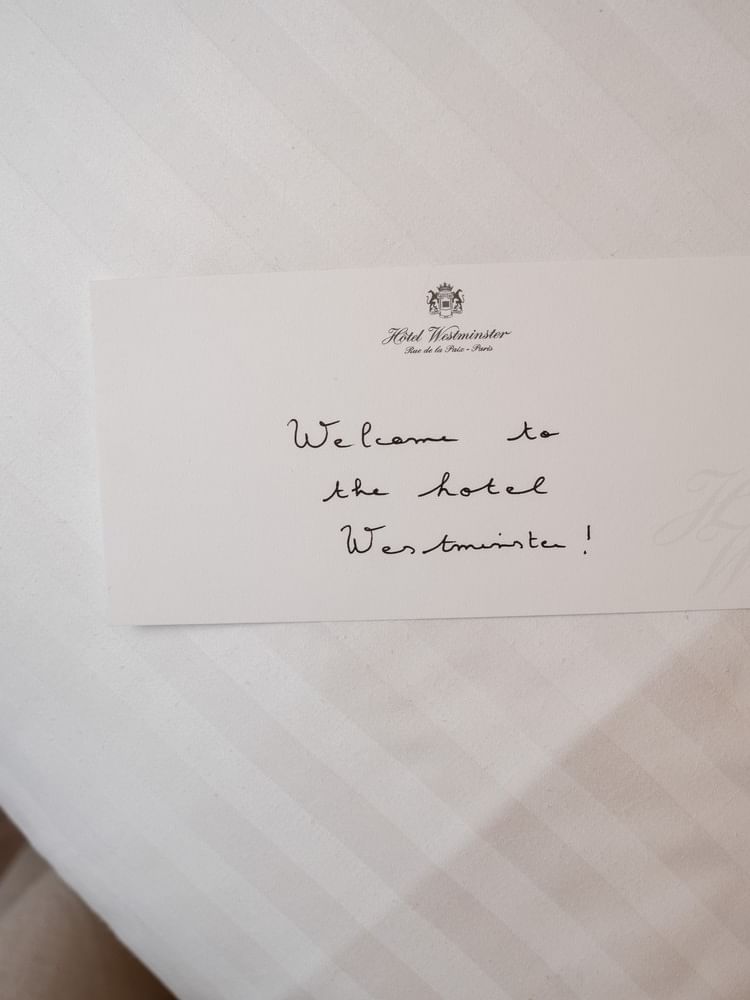 Hôtel Westminster
Rue de la Paix - Paris
Welcome to
the hotel
Westminster!